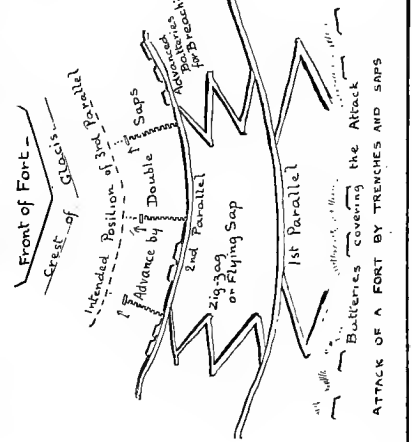 Front of Fort
Crest of Glacis
Intended Position of 3rd Parallel
Advance by Double Saps
Advanced
Batteries
for Breach
2nd Parallel
Zig-zag
or Flying Sap
1st Parallel
Batteries covering the Attack
ATTACK OF A FORT BY TRENCHES AND SAPS